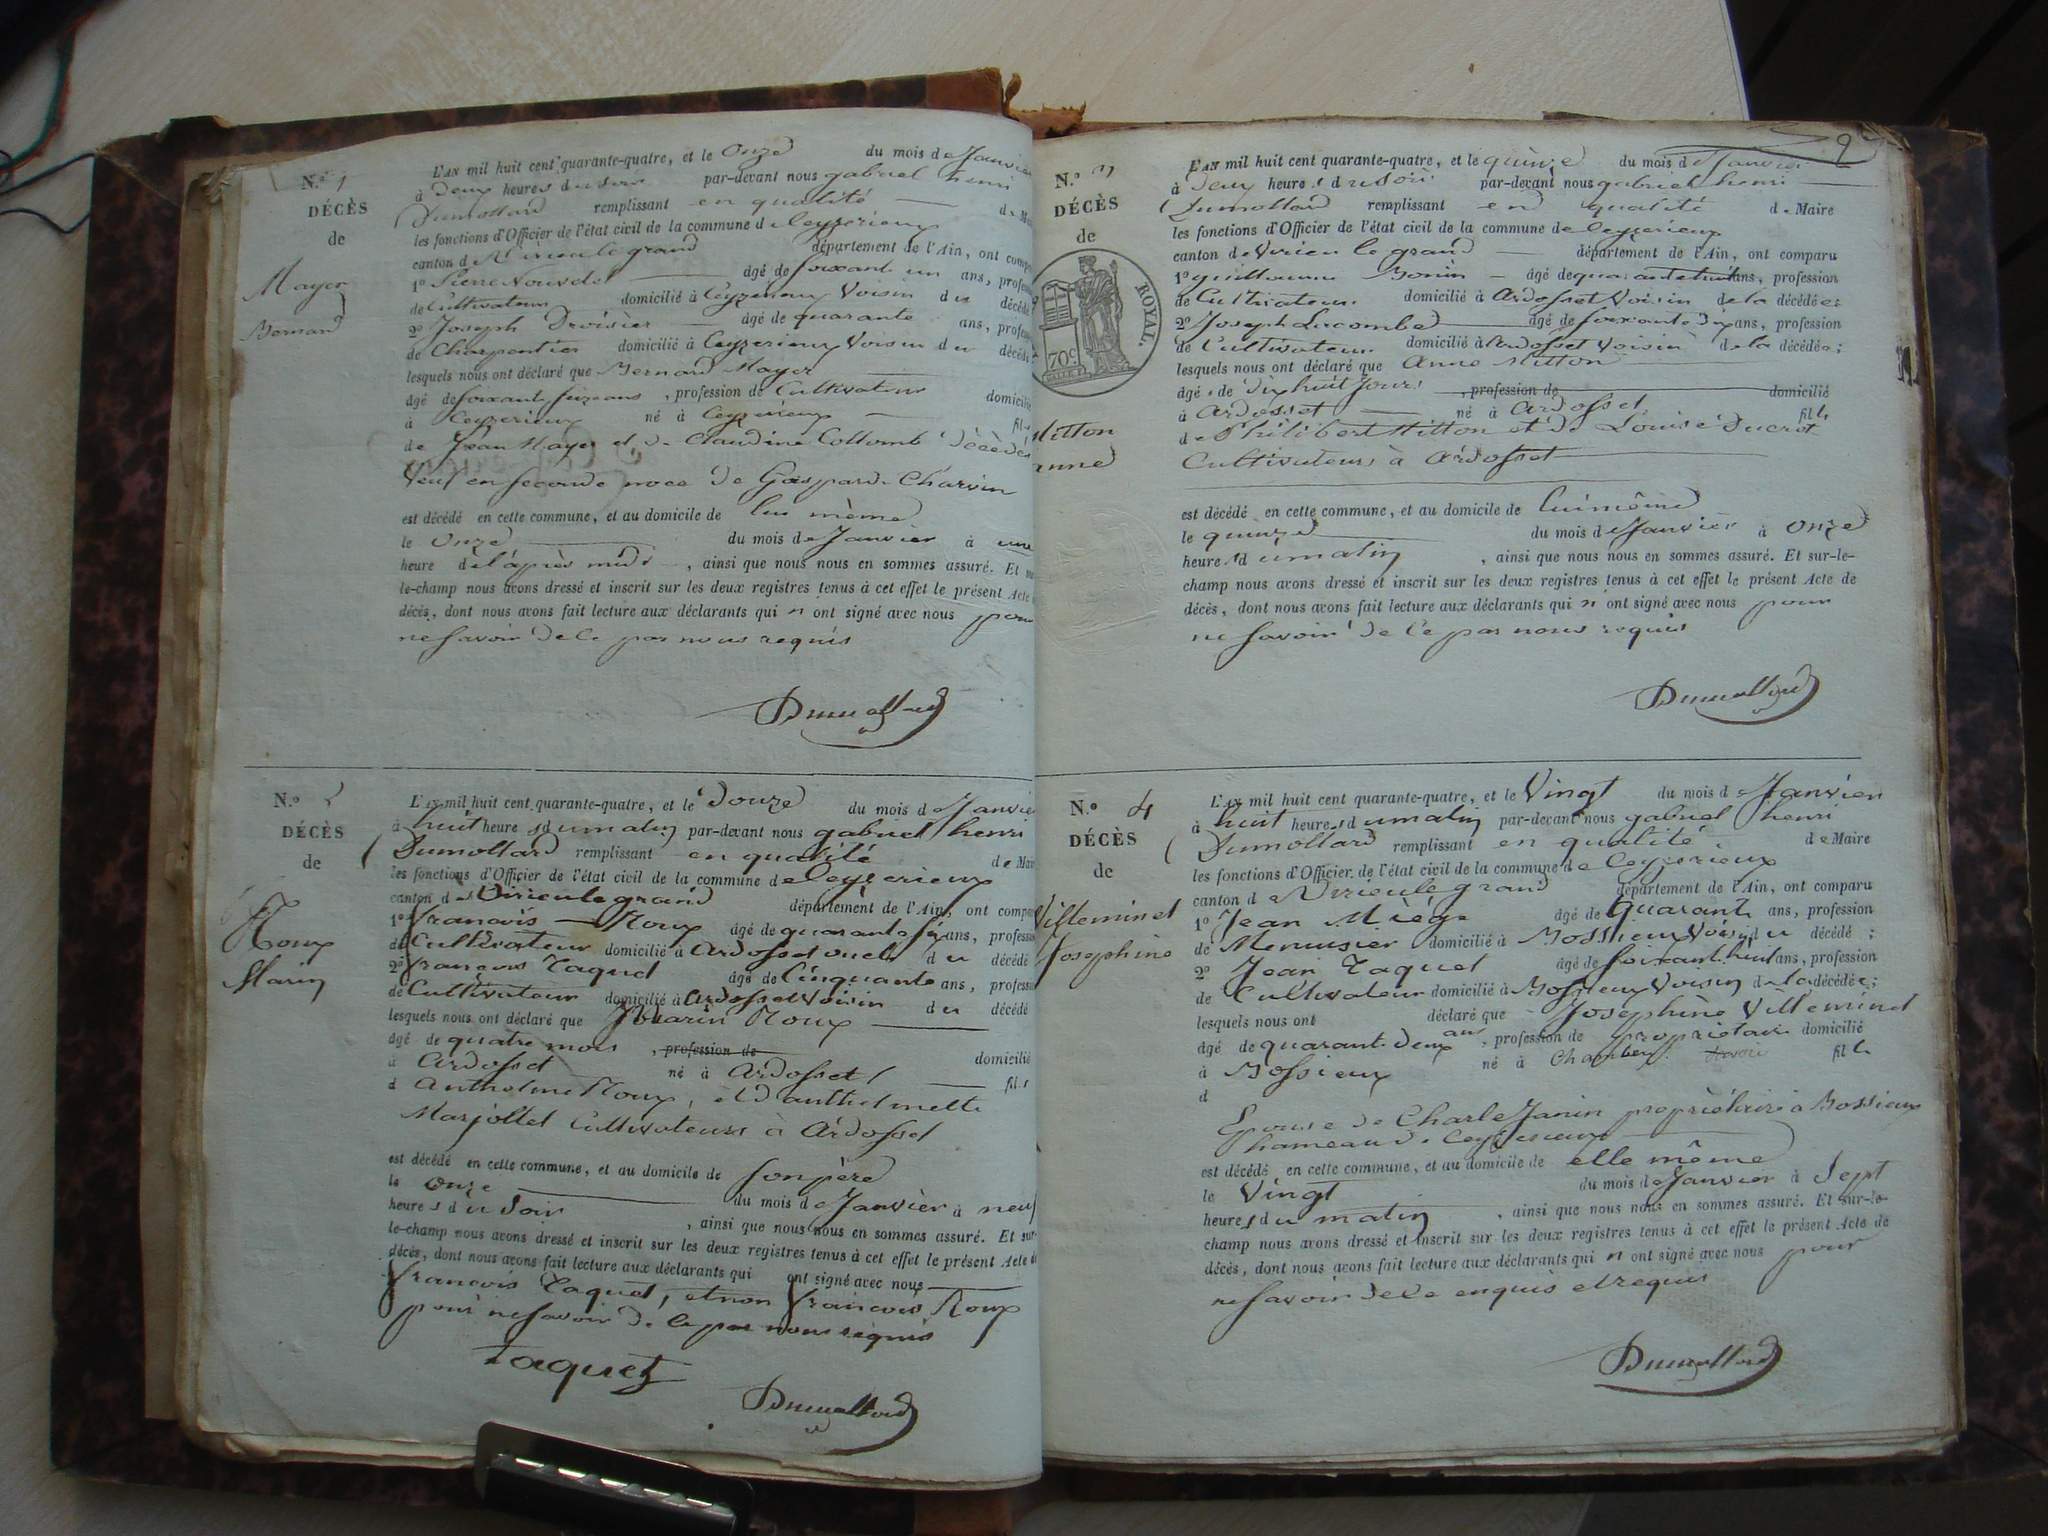 N.o 1
DÉCÈS
de
Mayer
Bernard
L'AN mil huit cent quarante-quatre, et le onze du mois de Janvier
à deux heures du soir par-devant nous gabriel henri
Dumollard remplissant en qualité de
les fonctions d'Officier de l'état civil de la commune de Ceyzerieux
canton de Virieu le grand département de l'Ain, ont
1o Pierre âgé de soixante un ans,
de Cultivateur domicilié à Ceyzerieux Voisin du
2o Joseph Droisier âgé de quarante ans,
de Charpentier domicilié à Ceyzerieux Voisin du
lesquels nous ont déclaré que Bernard Mayer
âgé de soixante ans, profession de Cultivateur
à Ceyzerieux né à Ceyzerieux
de Jean Mayer et de Claudine Collomb décédés
Veuf en seconde noce de Gasparde Charvin
est décédé en cette commune, et au domicile de lui même
le onze du mois de Janvier à une
heure de l'après midi, ainsi que nous nous en sommes assuré. Et
le-champ nous avons dressé et inscrit sur les deux registres tenus à cet effet le présent Acte
décès, dont nous avons fait lecture aux déclarants qui n'ont signé avec nous pour
ne savoir de ce par nous requis
Dumollard
N.o 2
DÉCÈS
de
Roux
Marin
L'AN mil huit cent quarante-quatre, et le douze du mois de Janvier
à huit heures du matin par-devant nous gabriel henri
Dumollard remplissant en qualité de
les fonctions d'Officier de l'état civil de la commune de Ceyzerieux
canton de Virieu le grand département de l'Ain, ont
1o francois Roux âgé de quarante six ans,
de Cultivateur domicilié à Ardosset oncle du décédé
2o francois Taquet âgé de Cinquante ans,
de Cultivateur domicilié à Ardosset Voisin du décédé
lesquels nous ont déclaré que Marin Roux
âgé de quatre mois, profession de domicilié
à Ardosset né à Ardosset fils
d Anthelme Roux, et d'anthelmette
Marjollet Cultivateurs à Ardosset
est décédé en cette commune, et au domicile de son père
le onze du mois de Janvier à neuf
heures du soir, ainsi que nous nous en sommes assuré. Et sur-
le-champ nous avons dressé et inscrit sur les deux registres tenus à cet effet le présent Acte de
décès, dont nous avons fait lecture aux déclarants qui ont signé avec nous
francois Taquet, et non francois Roux
pour ne savoir de ce par nous requis
taquet
Dumollard
9
N.o 3
DÉCÈS
de
ROYAL.
70c
Mitton
anne
L'AN mil huit cent quarante-quatre, et le quinze du mois de Janvier
à deux heures du soir par-devant nous gabriel henri
Dumollard remplissant en qualité de Maire
les fonctions d'Officier de l'état civil de la commune de Ceyzerieux
canton de Virieu le grand département de l'Ain, ont comparu
1o guillaume Bonin âgé de quarante huit ans, profession
de Cultivateur domicilié à Ardosset Voisin de la décédée;
2o Joseph Lacombe âgé de soixante dix ans, profession
de Cultivateur domicilié à Ardosset Voisin de la décédée;
lesquels nous ont déclaré que Anne Mitton
âgée de dix huit Jours, profession de domicilié
à Ardosset né à Ardosset fille
de Philibert Mitton et de Louise Ducrot
Cultivateurs à Ardosset
est décédé en cette commune, et au domicile de lui même
le quinze du mois de Janvier à onze
heures du matin, ainsi que nous nous en sommes assuré. Et sur-le-
champ nous avons dressé et inscrit sur les deux registres tenus à cet effet le présent Acte de
décès, dont nous avons fait lecture aux déclarants qui n'ont signé avec nous pour
ne savoir de ce par nous requis
Dumollard
N.o 4
DÉCÈS
de
Villeminet
Josephine
L'AN mil huit cent quarante-quatre, et le Vingt du mois de Janvier
à huit heures du matin par-devant nous gabriel henri
Dumollard remplissant en qualité de Maire
les fonctions d'Officier de l'état civil de la commune de Ceyzerieux
canton de Virieu le grand département de l'Ain, ont comparu
1o Jean Miège âgé de quarante ans, profession
de Menuisier domicilié à Bossieux Voisin du décédé;
2o Jean Taquet âgé de soixante huit ans, profession
de Cultivateur domicilié à Bossieux Voisin de la décédée;
lesquels nous ont déclaré que Josephine Villeminet
âgé de quarante deux ans, profession de propriétaire domicilié
à Bossieux né à Chambery Savoie fille
d
Epouse de Charle Janin propriétaire à Bossieux
hameau de Ceyzerieux
est décédé en cette commune, et au domicile de elle même
le Vingt du mois de Janvier à Sept
heures du matin, ainsi que nous nous en sommes assuré. Et sur-le-
champ nous avons dressé et inscrit sur les deux registres tenus à cet effet le présent Acte de
décès, dont nous avons fait lecture aux déclarants qui n'ont signé avec nous pour
ne savoir de ce enquis et requis
Dumollard